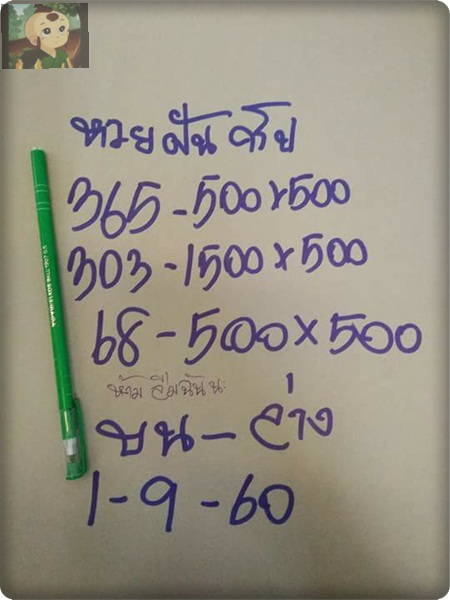 หวยฝัน
365-500x500
303-1500x500
68-500x500
ห้ามลืมฉันนะ
บน-ล่าง
1-9-60